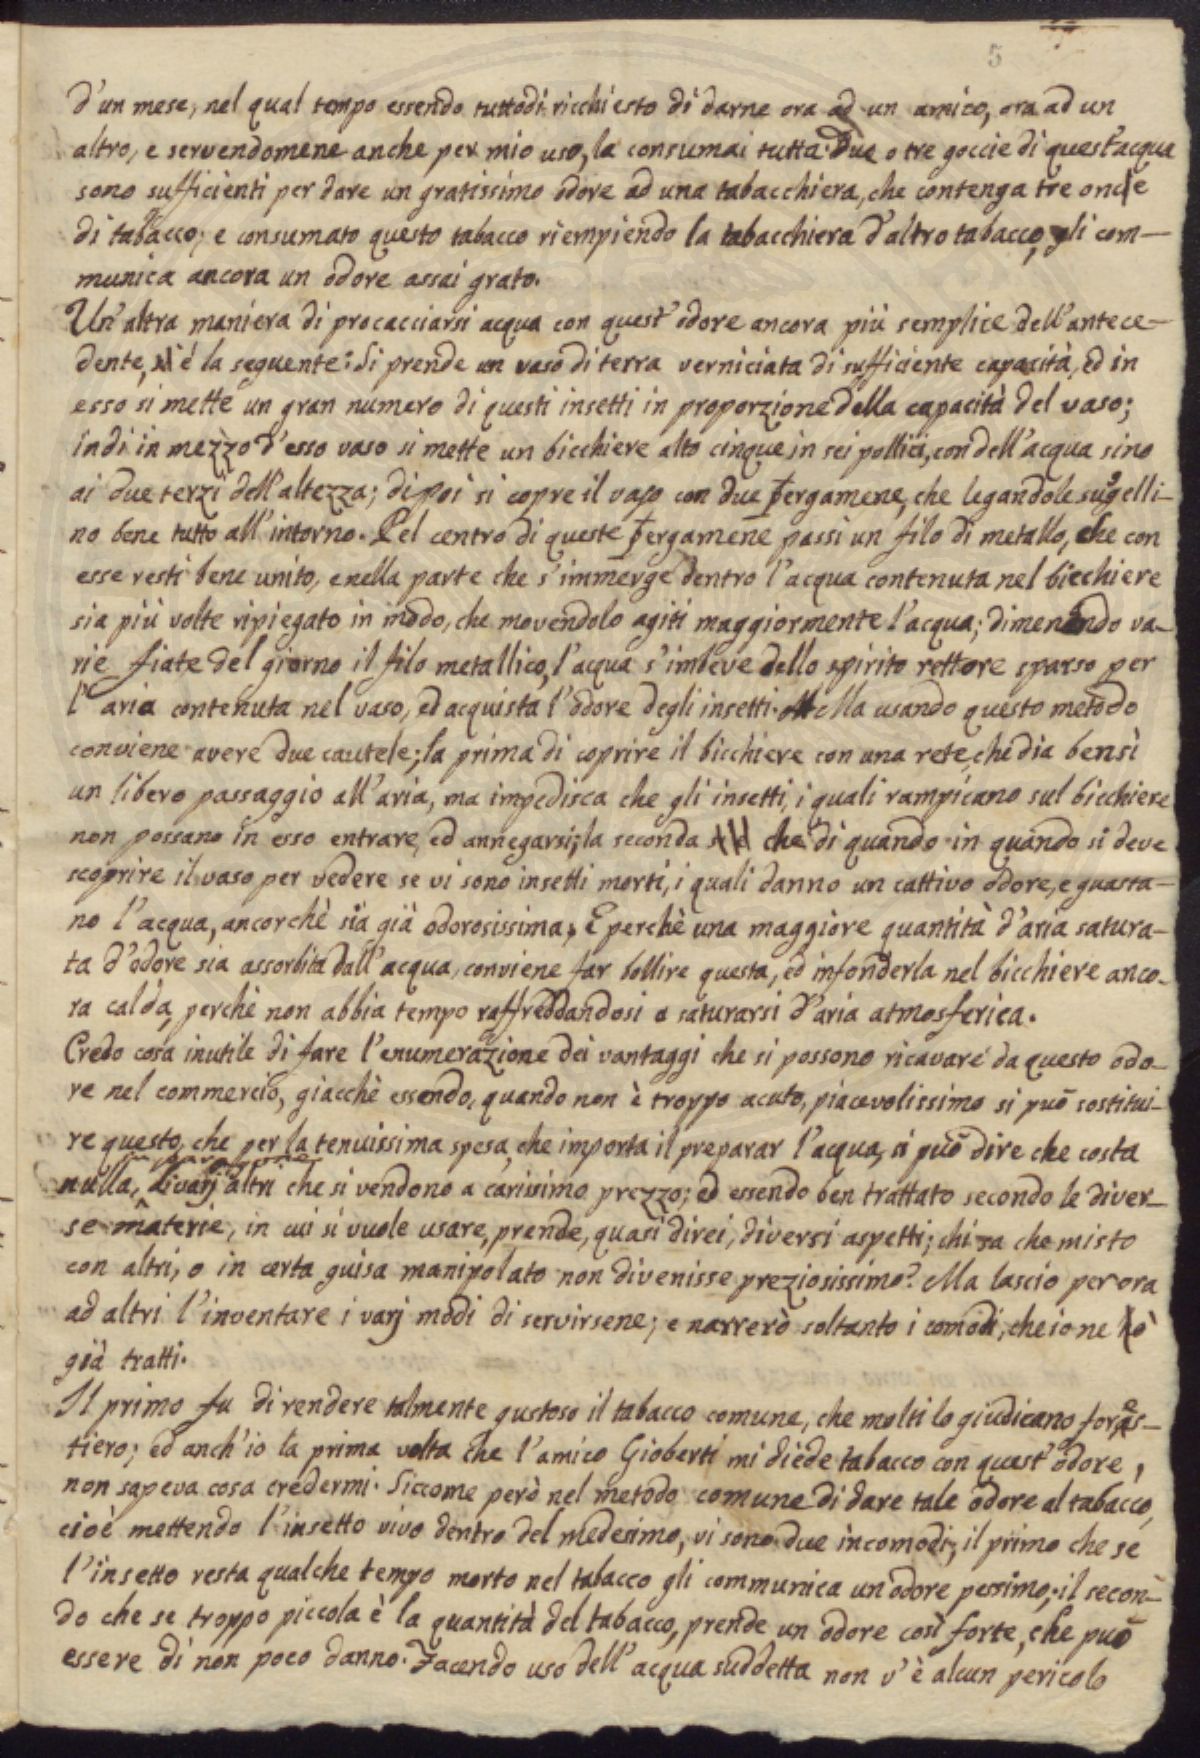 5
d'un mese, nel qual tempo essendo tuttodì ricchiesto di darne ora ad un amico, ora ad un
altro, e servendomene anche per mio uso, la consumai tutta. Due o tre goccie di quest'acqua
sono sufficienti per dare un gratissimo odore ad una tabacchiera, che contenga tre oncie
di tabacco; e consumato questo tabacco riempiendo la tabacchiera d'altro tabacco, gli com-
munica ancora un odore assai grato.
Un'altra maniera di procacciarsi acqua con quest'odore ancora più semplice dell'antece-
dente, è la seguente: Si prende un vaso di terra verniciata di sufficiente capacità, ed in
esso si mette un gran numero di questi insetti in proporzione della capacità del vaso;
indi in mezzo d'esso vaso si mette un bicchiere alto cinque in sei pollici, con dell'acqua sino
ai due terzi dell'altezza; di poi si copre il vaso con due pergamene, che legandole suggelli-
no bene tutto all'intorno. Pel centro di queste pergamene passi un filo di metallo, che con
esse resti bene unito, e nella parte che s'immerge dentro l'acqua contenuta nel bicchiere
sia più volte ripiegato in modo, che movendolo agiti maggiormente l'acqua; dimenando va-
rie fiate del giorno il filo metallico, l'acqua s'imbeve dello spirito rettore sparso per
l'aria contenuta nel vaso, ed acquista l'odore degli insetti. Ma usando questo metodo
conviene avere due cautele; la prima di coprire il bicchiere con una rete, che dia bensì
un libero passaggio all'aria, ma impedisca che gli insetti, i quali rampicano sul bicchiere
non possano in esso entrare, ed annegarsi; la seconda che di quando in quando si deve
scoprire il vaso per vedere se vi sono insetti morti, i quali danno un cattivo odore, e guasta-
no l'acqua, ancorchè sia già odorosissima; E perchè una maggiore quantità d'aria satura-
ta d'odore sia assorbita dall'acqua, conviene far bollire questa, ed infonderla nel bicchiere anco-
ra calda, perchè non abbia tempo raffreddandosi a saturarsi d'aria atmosferica.
Credo cosa inutile di fare l'enumerazione dei vantaggi che si possono ricavare da questo odo-
re nel commercio, giacchè essendo, quando non è troppo acuto, piacevolissimo si può sostitui-
re questo, che per la tenuissima spesa, che importa il preparar l'acqua, si può dire che costa
nulla, varj altri che si vendono a carissimo prezzo; ed essendo ben trattato secondo le diver-
se materie, in cui si vuole usare, prende, quasi direi, diversi aspetti; chi sa che misto
con altri, o in certa guisa manipolato non divenisse preziosissimo? Ma lascio per ora
ad altri l'inventare i varj modi di servirsene; e narrerò soltanto i comodi, che io ne ò
già tratti.
Il primo fu di rendere talmente gustoso il tabacco comune, che molti lo giudicano fores-
tiero; ed anch'io la prima volta che l'amico Gioberti mi diede tabacco con quest'odore,
non sapeva cosa credermi. Siccome però nel metodo comune di dare tale odore al tabacco,
cioè mettendo l'insetto vivo dentro del medesimo, vi sono due incomodi; il primo che se
l'insetto resta qualche tempo morto nel tabacco gli communica un'odore pessimo; il secon-
do che se troppo piccola è la quantità del tabacco, prende un odore così forte, che può
essere di non poco danno. Facendo uso dell'acqua suddetta non v'è alcun pericolo